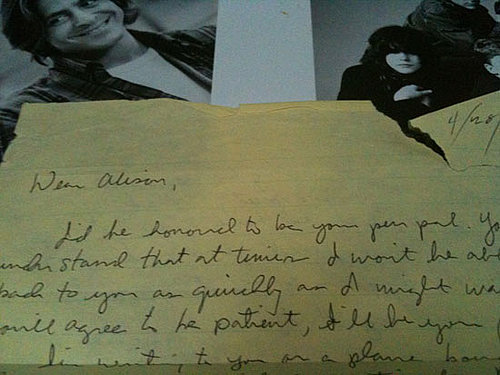 4/20/
Dear Alison,
I'd be honored to be your pen pal. Yo
understand that at times I won't be abl
back to you as quickly as I might wa
will agree to be patient, I'll be your
I'm writing to you on a plane boun